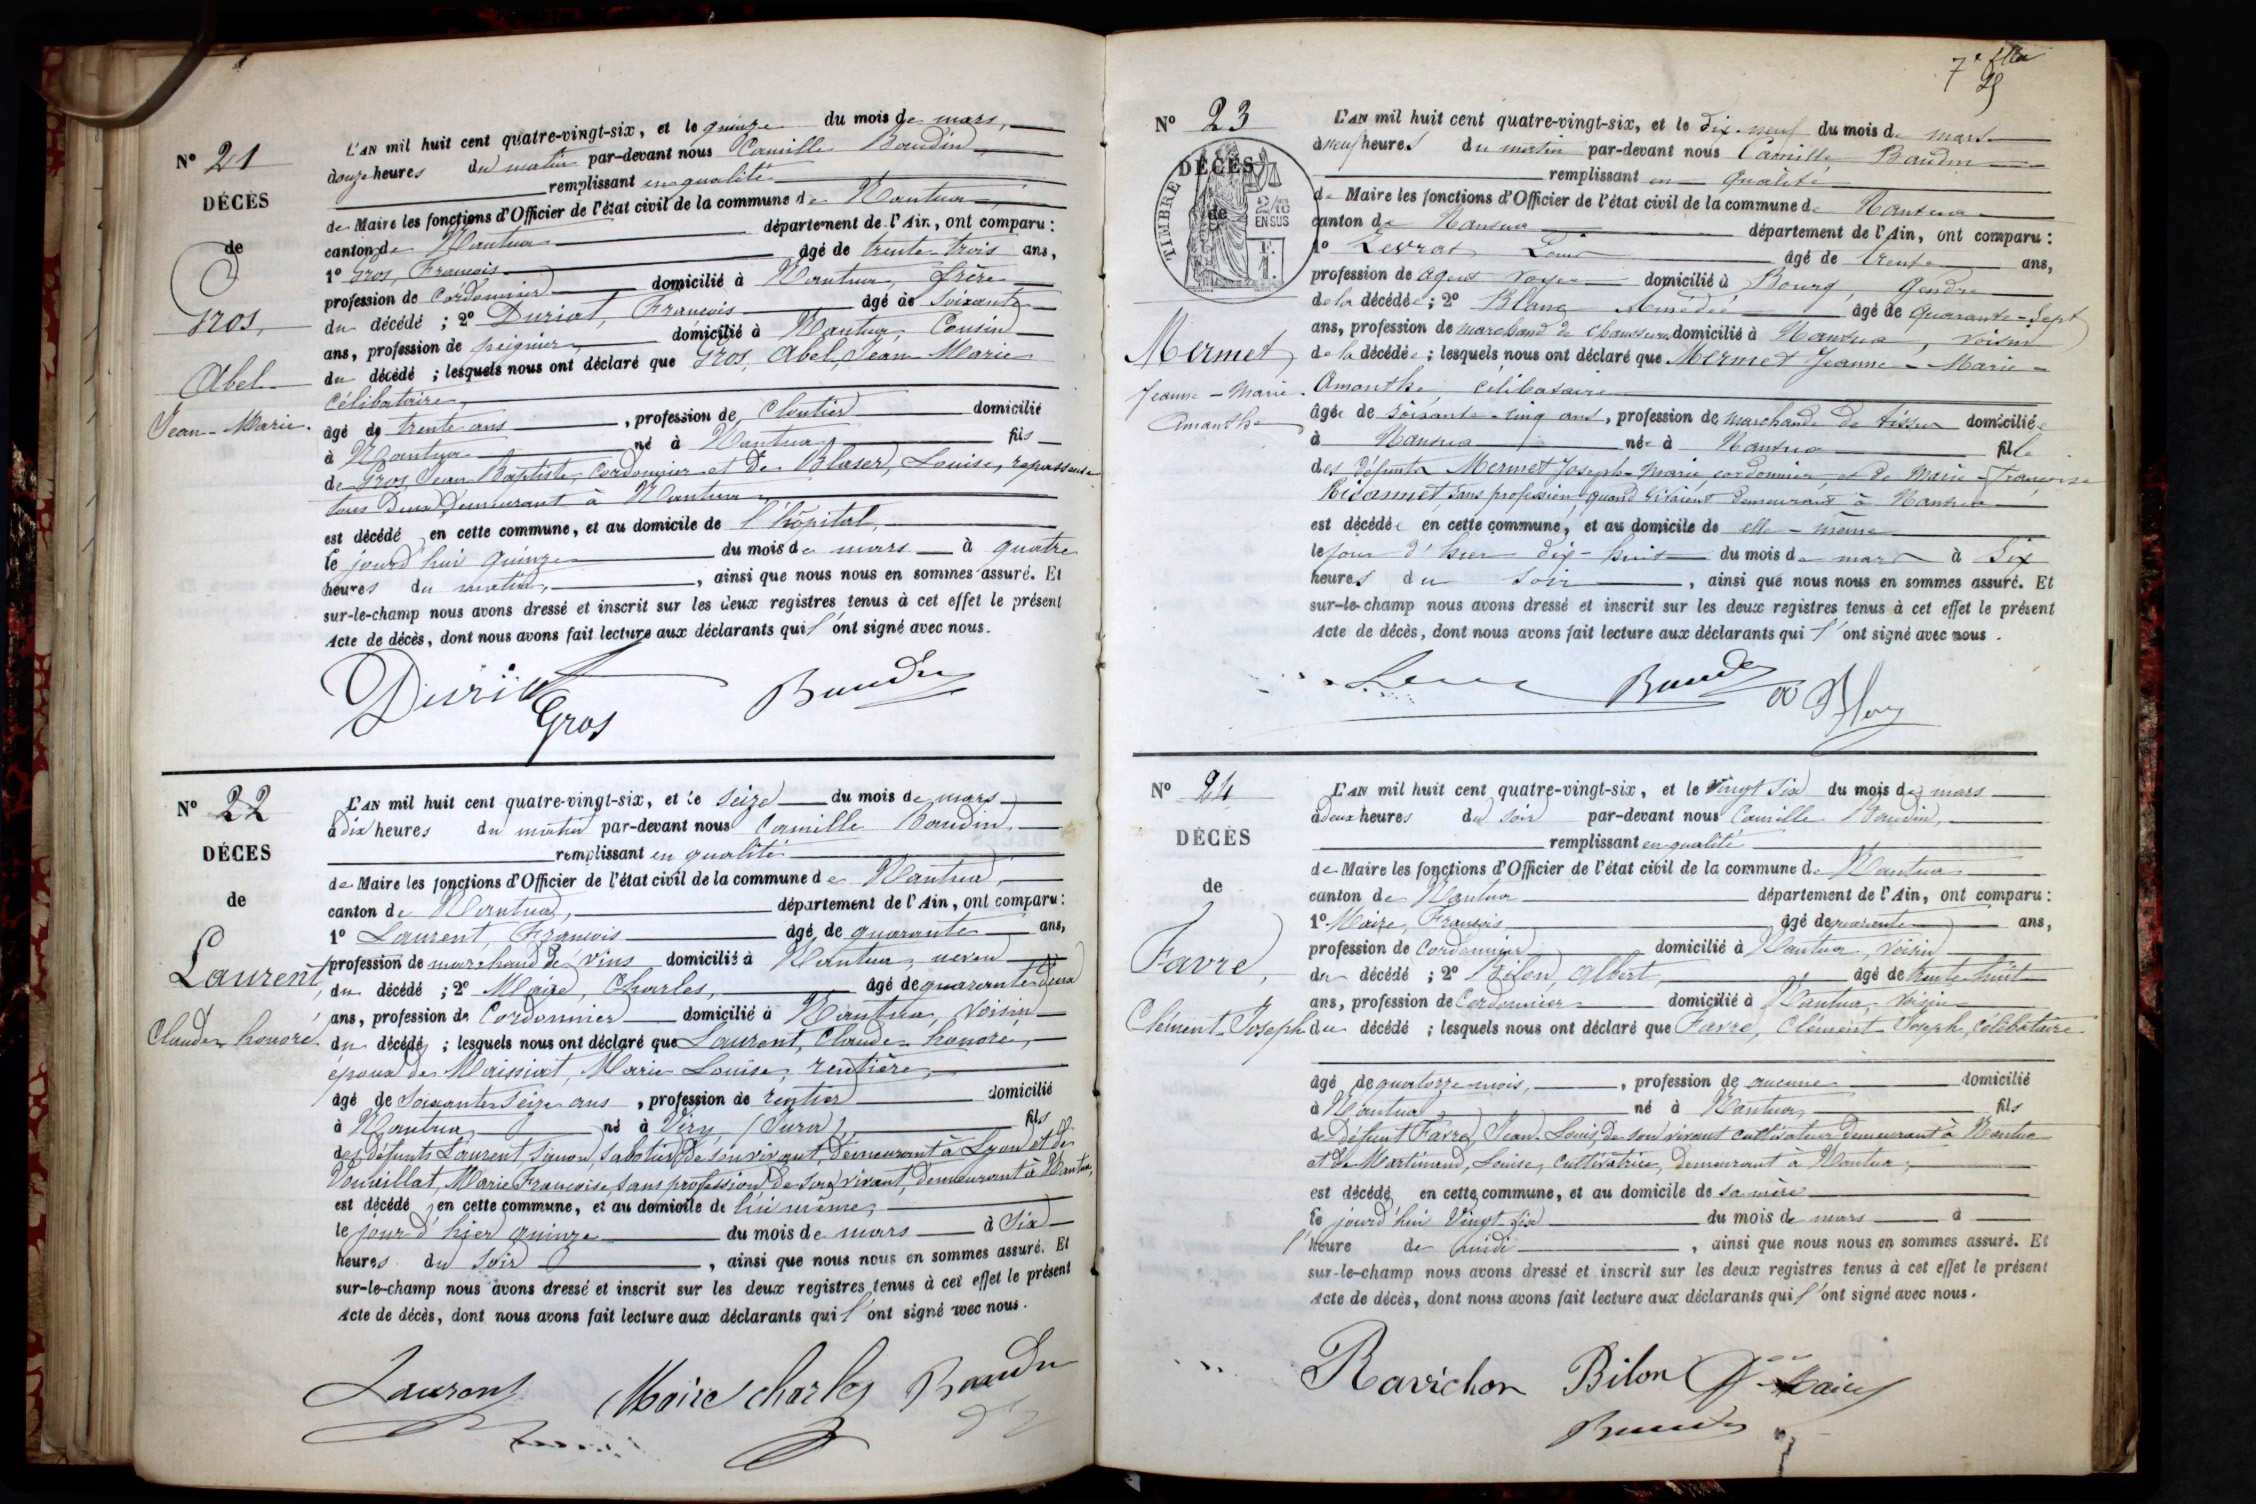 N° 21
DÉCÈS
de
Gros,
Abel
Jean-Marie.
L'AN mil huit cent quatre-vingt-six, et le quinze du mois de mars,
à onze heures du matin par-devant nous Camille Baudin
remplissant en qualité
de Maire les fonctions d'Officier de l'état civil de la commune de Nantua
canton de Nantua département de l'Ain, ont comparu :
1° Gros, François âgé de trente trois ans,
profession de Cordonnier domicilié à Nantua, frère
du décédé ; 2° Duriat, François âgé de Soixante
ans, profession de peignier, domicilié à Nantua, Cousin
du décédé ; lesquels nous ont déclaré que Gros, Abel, Jean Marie
Célibataire,
âgé de trente ans, profession de Cloutier domicilié
à Nantua né à Nantua, fils
de Gros, Jean Baptiste, Cordonnier et de Blaser, Louise, repasseuse
tous deux demeurant à Nantua,
est décédé en cette commune, et au domicile de l'hôpital,
le jourd'hui quinze du mois de mars à quatre
heures du matin, ainsi que nous nous en sommes assuré. Et
sur-le-champ nous avons dressé et inscrit sur les deux registres tenus à cet effet le présent
Acte de décès, dont nous avons fait lecture aux déclarants qui l'ont signé avec nous.
Duriat Baudin
Gros
N° 22
DÉCES
de
Laurent,
Claude honoré.
L'AN mil huit cent quatre-vingt-six, et le seize du mois de mars
à dix heures du matin par-devant nous Camille Baudin,
remplissant en qualité
de Maire les fonctions d'Officier de l'état civil de la commune de Nantua,
canton de Nantua, département de l'Ain, ont comparu :
1° Laurent, François âgé de quarante ans,
profession de marchand de vins domicilié à Nantua, neveu
du décédé ; 2° Maire, Charles, âgé de quarante deux
ans, profession de Cordonnier domicilié à Nantua, voisin
du décédé ; lesquels nous ont déclaré que Laurent, Claude honoré,
époux de Maissiat, Marie Louise, rentière,
âgé de Soixante Seize ans, profession de rentier domicilié
à Nantua, né à Viry (Jura), fils
des défunts Laurent Simon, sabotier de son vivant, demeurant à Lyon et de
Vouaillat, Marie Françoise, sans profession de son vivant, demeurant à Nantua,
est décédé en cette commune, et au domicile de lui même,
le jour d'hier quinze du mois de mars à six
heures du soir, ainsi que nous nous en sommes assuré. Et
sur-le-champ nous avons dressé et inscrit sur les deux registres tenus à cet effet le présent
Acte de décès, dont nous avons fait lecture aux déclarants qui l'ont signé avec nous.
Laurent Maire Charles Baudin
N° 23
DÉCÈS
de
TIMBRE
2/10 EN SUS
Mermet,
Jeanne-Marie.
Amanthe
L'AN mil huit cent quatre-vingt-six, et le dix-neuf du mois de mars
à neuf heures du matin par-devant nous Camille Baudin
remplissant en qualité
de Maire les fonctions d'Officier de l'état civil de la commune de Nantua
canton de Nantua département de l'Ain, ont comparu :
1° Levrat Louis âgé de trente ans,
profession de agent voyer domicilié à Bourg, gendre
de la décédée ; 2° Blanc Amédée âgé de quarante-sept
ans, profession de marchand de chaussures domicilié à Nantua, voisin
de la décédée ; lesquels nous ont déclaré que Mermet Jeanne-Marie-
Amanthe, célibataire
âgée de soixante-cinq ans, profession de marchande de tissus domiciliée
à Nantua née à Nantua fille
des défunts Mermet Joseph-Marie, cordonnier, et de Marie-Françoise
sans profession, quand vivaient demeurant à Nantua
est décédée en cette commune, et au domicile de elle-même
le jour d'hier dix-huit du mois de mars à six
heures du soir, ainsi que nous nous en sommes assuré. Et
sur-le-champ nous avons dressé et inscrit sur les deux registres tenus à cet effet le présent
Acte de décès, dont nous avons fait lecture aux déclarants qui l'ont signé avec nous.
Baudin
N° 24
DÉCÈS
de
Favre,
Clément Joseph
L'AN mil huit cent quatre-vingt-six, et le vingt six du mois de mars
à deux heures du soir par-devant nous Camille Baudin,
remplissant en qualité
de Maire les fonctions d'Officier de l'état civil de la commune de Nantua
canton de Nantua département de l'Ain, ont comparu :
1° Maire, François âgé de quarante ans,
profession de Cordonnier domicilié à Nantua, voisin
du décédé ; 2° Bilon, Albert, âgé de trente huit
ans, profession de Cordonnier domicilié à Nantua, voisin
du décédé ; lesquels nous ont déclaré que Favre, Clément Joseph, célibataire
âgé de quatorze mois, profession de aucune domicilié
à Nantua né à Nantua, fils
de défunt Favre, Jean Louis, de son vivant cultivateur demeurant à Nantua
et de Martinand, Louise, cultivatrice, demeurant à Nantua,
est décédé en cette commune, et au domicile de sa mère
le jourd'hui vingt six du mois de mars à
l'heure de midi, ainsi que nous nous en sommes assuré. Et
sur-le-champ nous avons dressé et inscrit sur les deux registres tenus à cet effet le présent
Acte de décès, dont nous avons fait lecture aux déclarants qui l'ont signé avec nous.
Ravichon Bilon Maire
Baudin